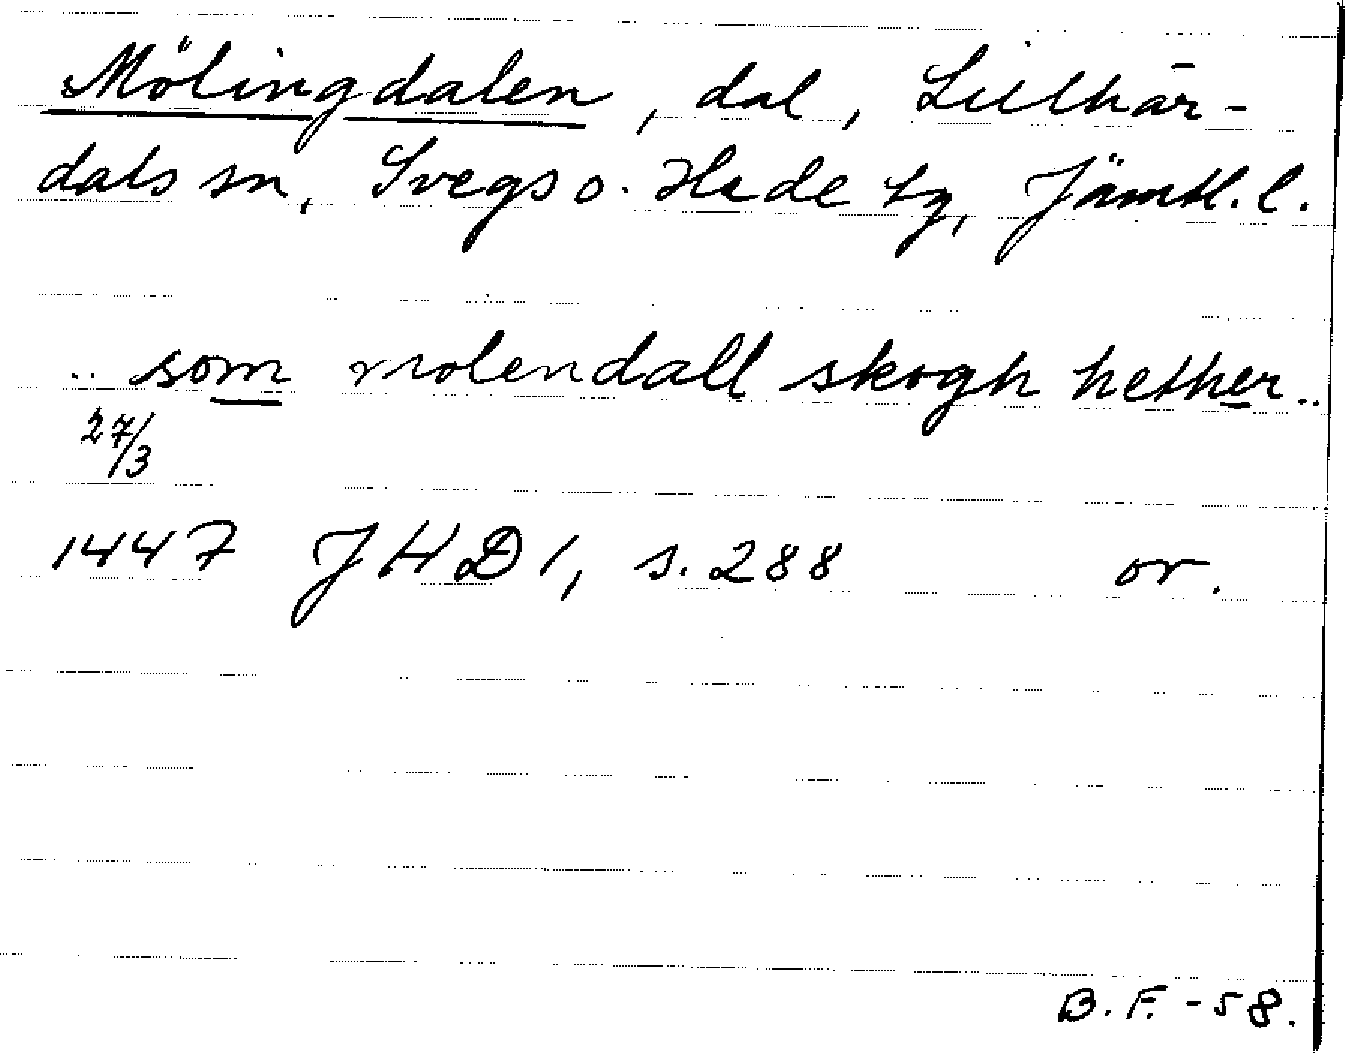 Mölingdalen, dal, Lillhär-
dals sn, Svegs o. Hede tg, Jämtl. l.
.. som molendall skogh hether..
27/3
1447 JHD 1, s. 288 or.
B. F. -58.